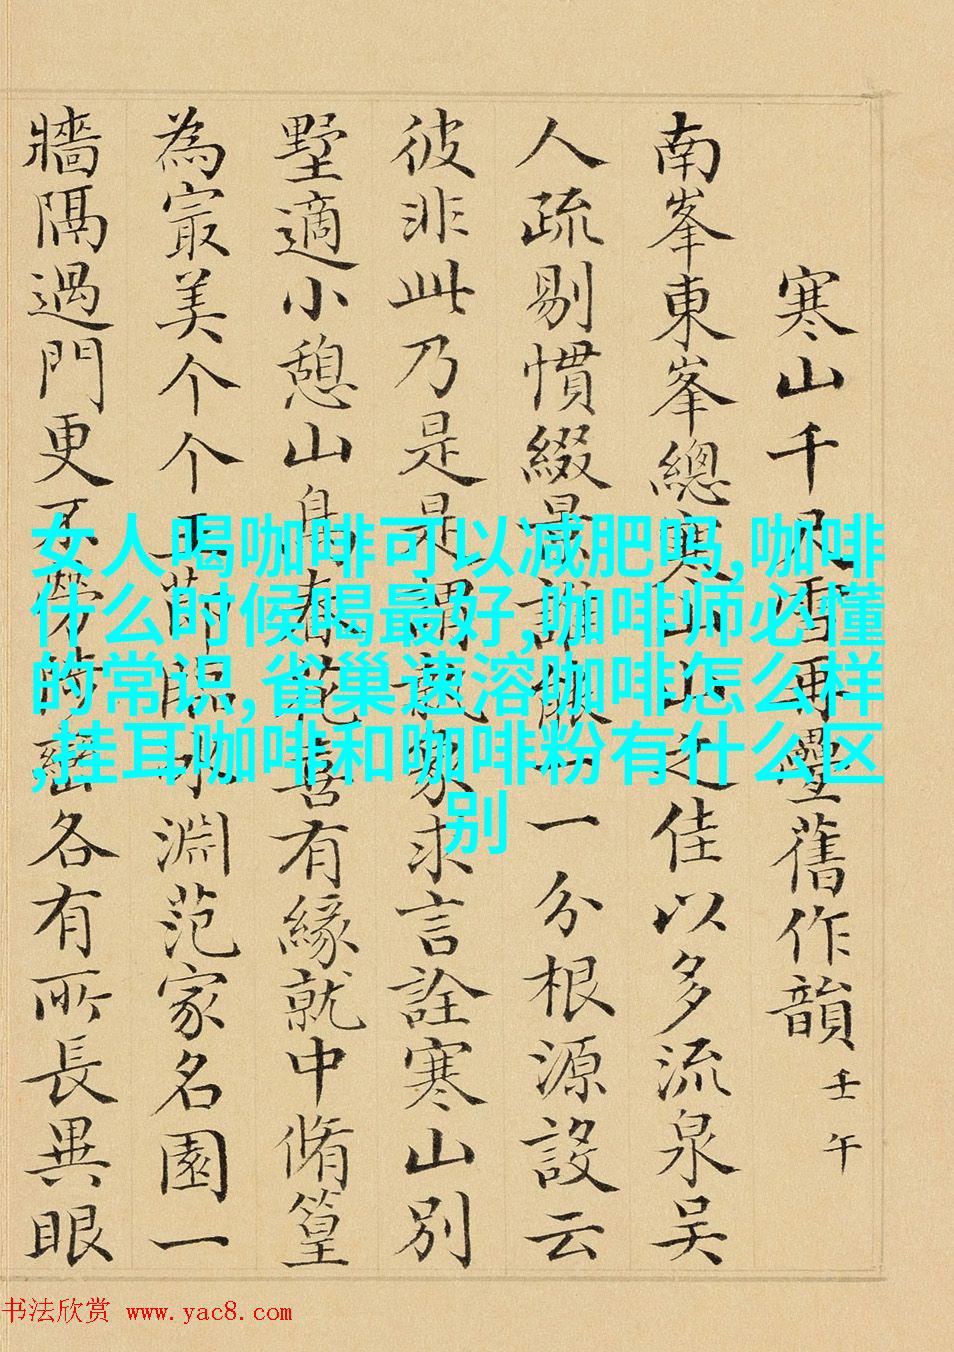 寒山千尺雪再疊舊作韻 壬午
南峯東峯總寒山山之佳以多流泉吳
人疏剔慣綴景詎厭一分根源設云
彼非此乃是是謂求言詮寒山別
墅適小憩山鳥春花喜有緣就中脩篁
為冣美个个玉節臨淵范家名園一
牆隔過門更不勞各有所長異眼
女人喝咖啡可以减肥吗,咖啡
什么时候喝最好,咖啡师必懂
的常识,雀巢速溶咖啡怎么样
,挂耳咖啡和咖啡粉有什么区
别
书法欣赏 www.yac8.com